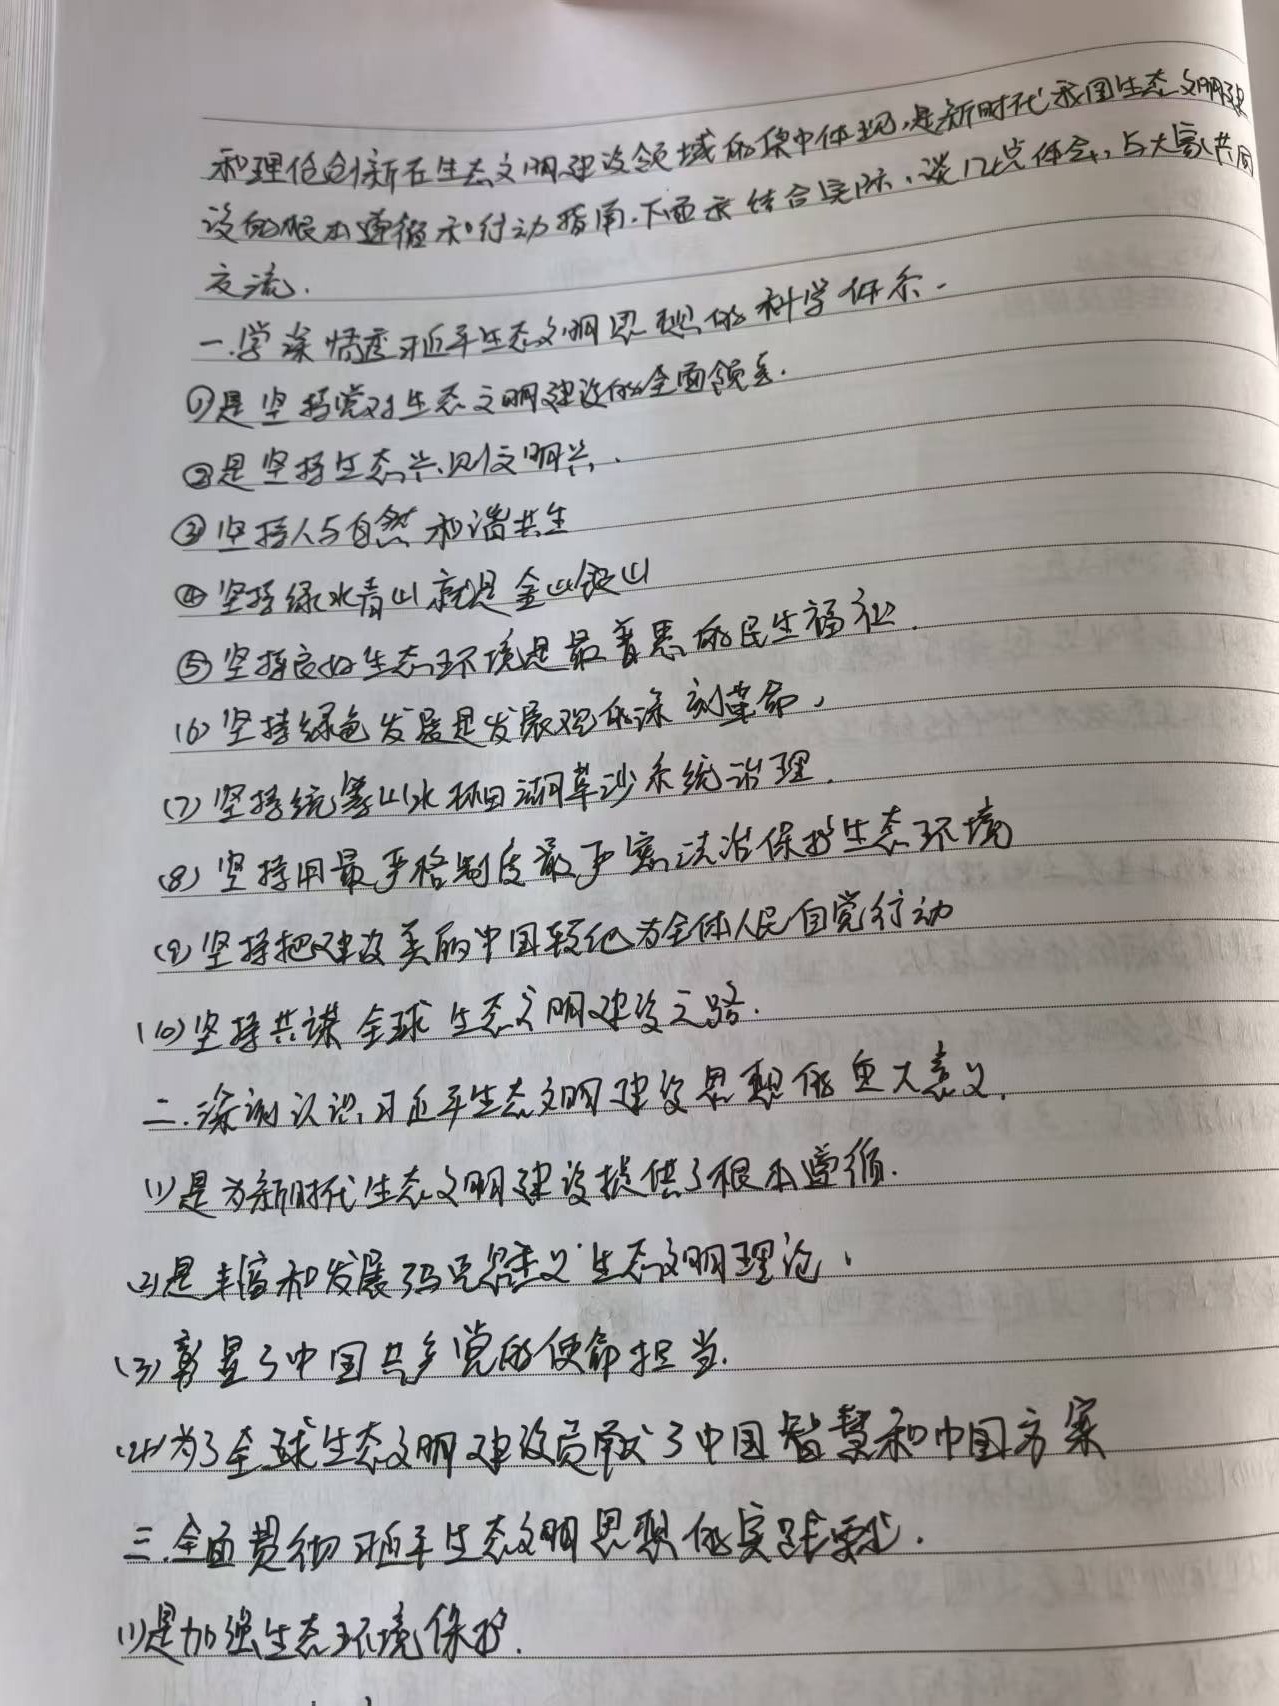 和理论创新在生态文明建设领域的集中体现,是新时代我国生态文明建
设的根本遵循和行动指南.下面我结合实际,谈几点体会,与大家共同
交流.
一.学深悟透习近平生态文明思想的科学体系.
①是坚持党对生态文明建设的全面领导.
②是坚持生态兴则文明兴.
③坚持人与自然和谐共生
④坚持绿水青山就是金山银山
⑤坚持良好生态环境是最普惠的民生福祉.
(6)坚持绿色发展是发展观的深刻革命,
(7)坚持统筹山水林田湖草沙系统治理.
(8)坚持用最严格制度最严密法治保护生态环境
(9)坚持把建设美丽中国转化为全体人民自觉行动
(10)坚持共谋全球生态文明建设之路.
二.深刻认识习近平生态文明建设思想的重大意义.
(1)是为新时代生态文明建设提供了根本遵循.
(2)是丰富和发展马克思主义生态文明理论,
(3)彰显了中国共产党的使命担当.
(4)为了全球生态文明建设贡献了中国智慧和中国方案
三.全面贯彻习近平生态文明思想的实践要求.
(1)是加强生态环境保护.